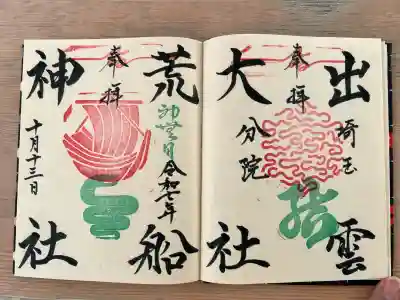 出雲
埼玉
奉拝
結
分院
大社
荒船
神無月
令和七年
奉拝
神社
十月十三日